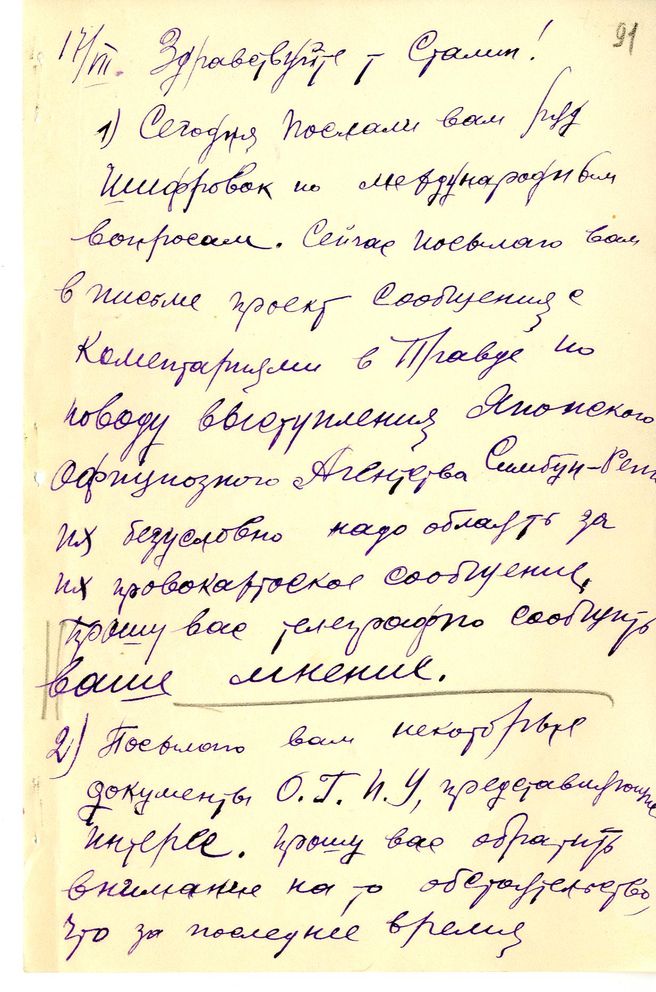 91
17/VII. Здравствуйте т Сталин!
1) Сегодня послали вам ряд
шифровок по международным
вопросам. Сейчас посылаю вам
в письме проект сообщения с
коментариями в Правде по
поводу выступления Японского
Официозного Агентства Симбун-Рен
их безусловно надо облаять за
их провокаторское сообщение,
прошу вас телеграфно сообщить
ваше мнение.
2) Посылаю вам некоторые
документы О.Г.П.У, представляющие
интерес. прошу вас обратить
внимание на то обстоятельство,
что за последнее время